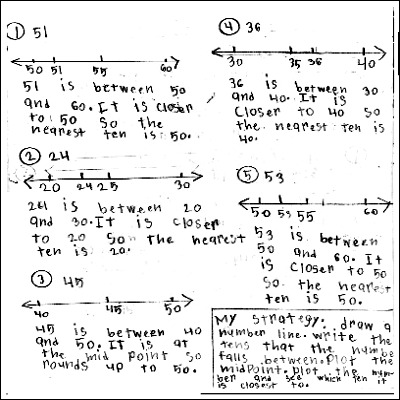 ① 51
50 51 55 60
51 is between 50
and 60. It is closer
to 50 so the
nearest ten is 50.
② 24
20 24 25 30
24 is between 20
and 30. It is closer
to 20 so the nearest
ten is 20.
③ 45
40 45 50
45 is between 40
and 50. It is at
the mid point so
rounds up to 50.
④ 36
30 35 36 40
36 is between 30
and 40. It is
closer to 40 so
the nearest ten is
40.
⑤ 53
50 53 55 60
53 is between
50 and 60. It
is closer to 50
so the nearest
ten is 50.
My strategy: draw a
number line. write the
tens that the numbe
falls between. Plot the
midPoint. plot the num-
ber and see which ten it
is closest to.